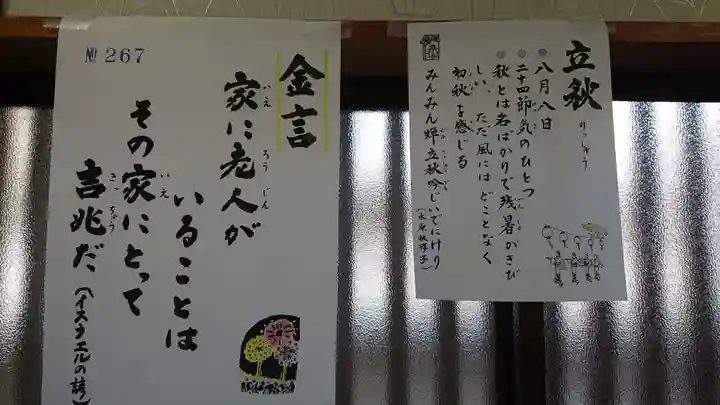 №267
金言
家に老人が
いることは
その家にとって
吉兆だ
(イスラエルの諺)
立秋
りっしゅう
八月八日
二十四節気のひとつ
秋とは名ばかりで残暑がきび
しい、ただ風にはどことなく
初秋を感じる
みんみん蟬立秋吟じいでにけり